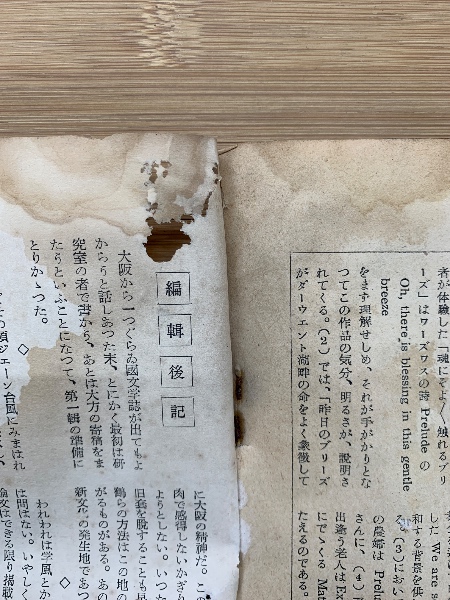 者が体験した「魂にそよ〱触れるブリ
ーズ」はワーズワスの詩 Prelude の
Oh, there is blessing in this gentle
breeze
をまず理解せしめ、それが手がかりとな
つてこの作品の気分、明るさが、説明さ
れてくる。(2)では、「昨日のブリーズ
がダーウェント湖畔の命をよく象徴して
した We are s
和する背景を供
る(3)におい
の農婦は Prelude
さんに、(4)
出逢う老人は Ex
にでくる Mat
たえるのである。
編輯後記
大阪から一つぐらゐ國文学誌が出てもよ
からうと話しあつた末、とにかく最初は研
究室の者で書から、あとは大方の寄稿をま
たうといふことになつて、第一輯の準備に
とりかゝつた。
◇
その頃ジェーン台風にみまはれ
に大阪の精神だ。こ
肉で感得しないかぎり
ようとしない。いつた
旧套を脱することも
鶴らの方法はこの地の
がるものがある。あの
新文化の発生地であつ
◇
われわれは学風とか
は問はない。いやしく
論文はできる限り掲載